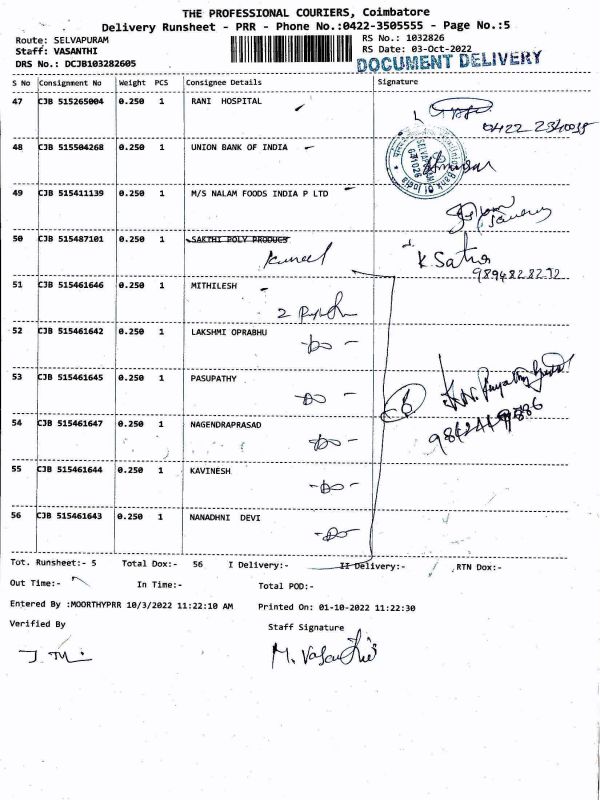 THE PROFESSIONAL COURIERS, Coimbatore
Delivery Runsheet - PRR - Phone No.:0422-3505555 - Page No.:5
Route: SELVAPURAM
RS No.: 1032826
Staff: VASANTHI
RS Date: 03-Oct-2022
DRS No.: DCJB103282605
DOCUMENT DELIVERY
S No Consignment No Weight PCS Consignee Details Signature
47 CJB 515265004 0.250 1 RANI HOSPITAL
48 CJB 515504268 0.250 1 UNION BANK OF INDIA
49 CJB 515411139 0.250 1 M/S NALAM FOODS INDIA P LTD
50 CJB 515487101 0.250 1 SAKTHI POLY PRODUCS
K. Sathya
9894828272
51 CJB 515461646 0.250 1 MITHILESH
52 CJB 515461642 0.250 1 LAKSHMI OPRABHU
-do-
53 CJB 515461645 0.250 1 PASUPATHY
-do-
54 CJB 515461647 0.250 1 NAGENDRAPRASAD
-do-
55 CJB 515461644 0.250 1 KAVINESH
-do-
56 CJB 515461643 0.250 1 NANADHNI DEVI
-do-
Tot. Runsheet:- 5 Total Dox:- 56 I Delivery:- II Delivery:- RTN Dox:-
Out Time:- In Time:- Total POD:-
Entered By :MOORTHYPRR 10/3/2022 11:22:10 AM Printed On: 01-10-2022 11:22:30
Verified By Staff Signature
M. Vasanthi